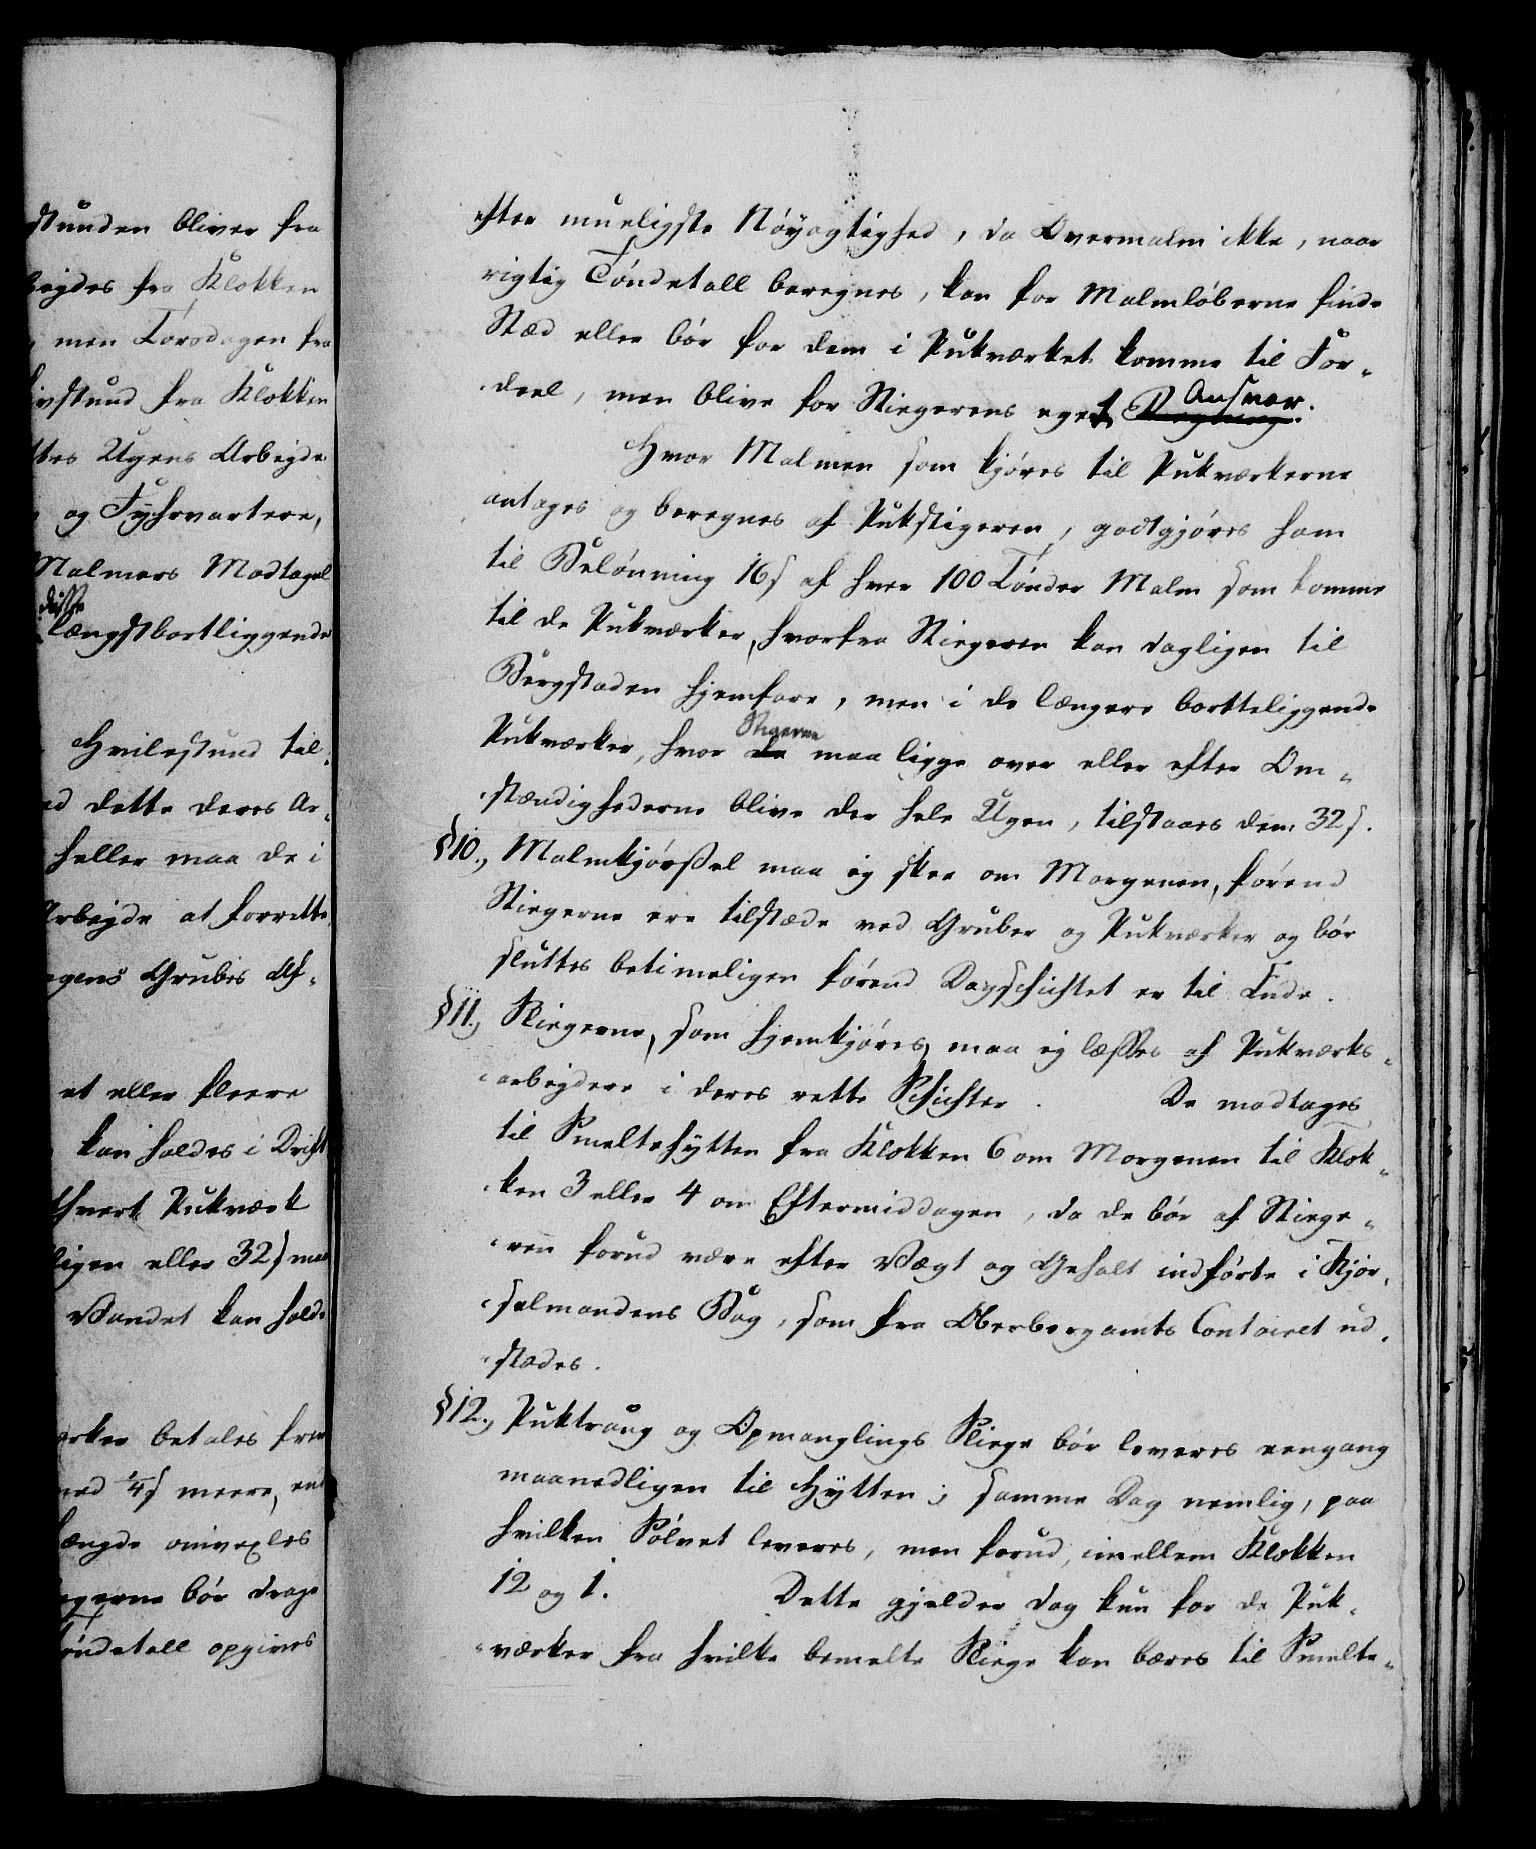 stunden bliver fra
beydes fra Klokken
, men Torsdagen fra
hvilstund fra Klokken
ttes Ugens Arbeyde
og Fyhrvartere,
Malmers Modtagel
disse
længstbortliggende
Hvilestund til
ed dette deres Ar-
heller maa de i
Arbeyde at forrette
egens Grubes Af-
et eller fleere
kan holdes i Drift
thvert Pukværk
ligen eller 32 s maa
Vandet kan holde
ærker betales frem
med 1/4 s meere, end
længde omvexles
egerne bör drage
Töndetall opgives
efter mueligste Nöyagtighed, da Overmalm ikke, naar
rigtig Töndetall beregnes, kan for Malmlöberne finde
Stæd eller bör for dem i Pukværket komme til For-
deel, men blive for Stiegerens eget Ansvar.
Hvor Malmen som kjöres til Pukværkerne
antages og beregnes af Pukstigeren, godtgjöres ham
til Belönning 16 s af hver 100 Tönder Malm som komme
til de Pukværker, hvorfra Stiegeren kan dagligen til
Bergstaden hjemfare, men i de længere bortteliggende
Stigerne
Pukværker, hvor de maa ligge over eller efter Om-
stændighederne blive der hele Ugen, tilstaaes dem 32 s.
§10., Malmkjörssel maa ej skee om Morgenen, förend
Stiegerne ere tilstæde ved Gruber og Pukværker og bör
sluttes betimeligen förend Dagschichtet er til Ende.
§11., Sliegerne, som hjemkjöres, maa ej læsses af Pukværks-
arbeydere i deres rette Schichter. De modtages
til Smeltehytten fra Klokken 6 om Morgenen til Klok-
ken 3 eller 4 om Eftermiddagen, da de bör af Stiege-
ren forud være efter Vægt og Gehalt indförte i Kjör-
selmandens Bog, som fra Oberbergamts Contoiret ud-
stædes.
§12., Puktraug og Opmanglings Sliege bör leveres eengang
maanedligen til Hytten; samme Dag nemlig, paa
hvilken Sölvet leveres, men forud, imellem Klokken
12 og 1. Dette gjelder dog kun for de Puk-
værker fra hvilke bemelte Sliege kan bæres til Smelte-